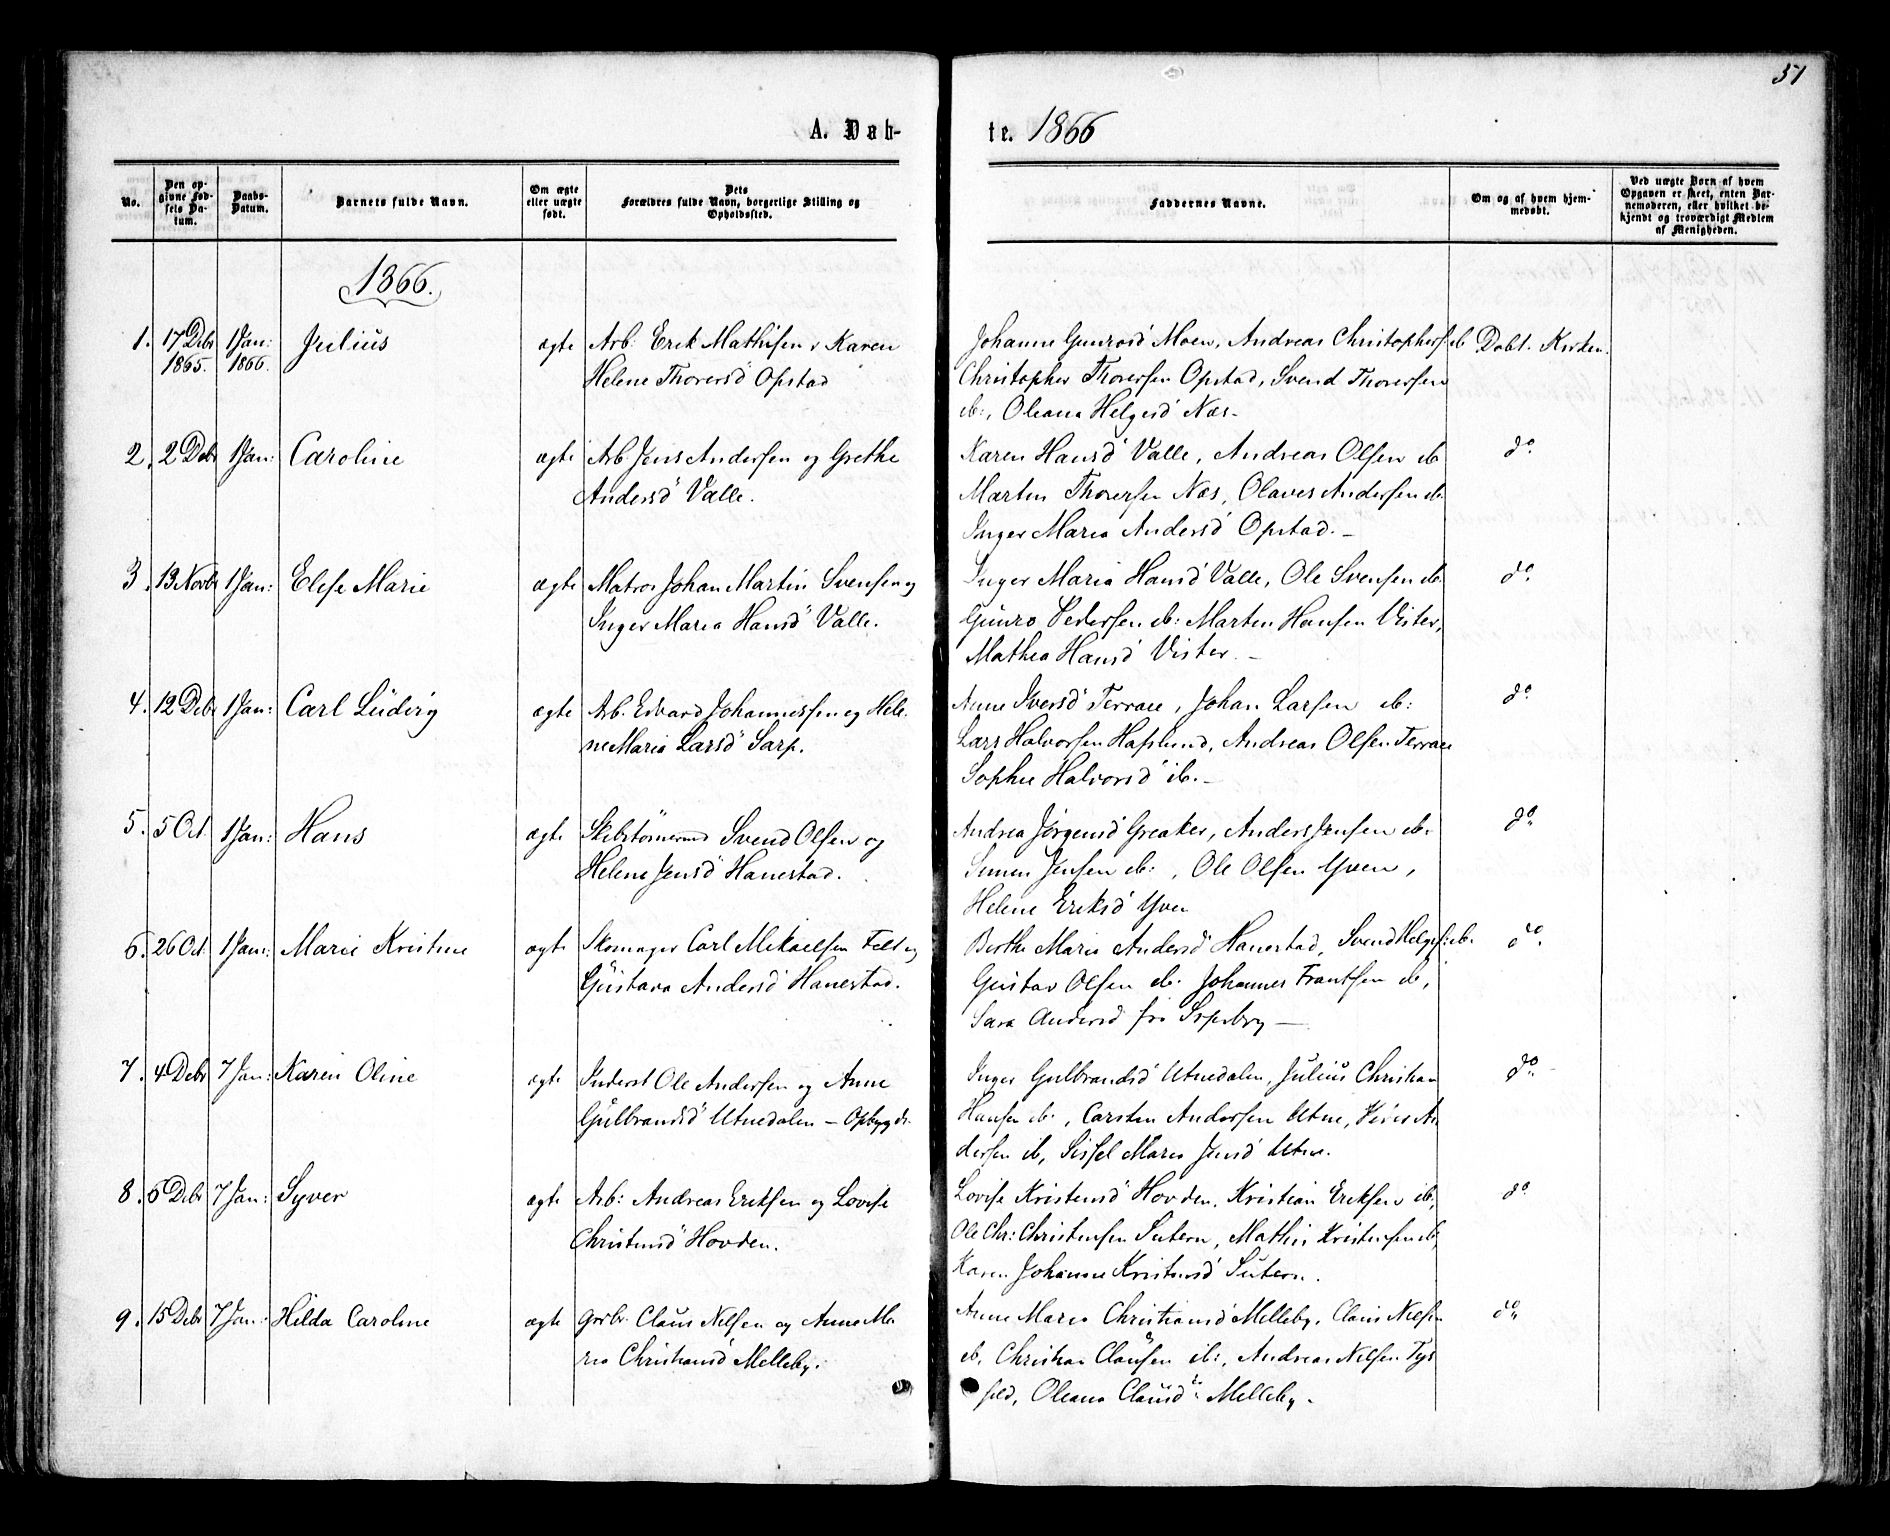 51
A. Døb-
te. 1866
No.
Den op-
givne Fød-
sels Da-
tum.
Daabs-
Datum.
Barnets fulde Navn.
Om ægte
eller uægte
født.
Dets
Forældres fulde Navn, borgerlige Stilling og
Opholdssted.
Faddernes Navne.
Om og af hvem hjem-
medøbt.
Ved uægte Børn af hvem
Opgaven er skeet, enten Bar-
nemoderen, eller hvilket be-
kjendt og troværdigt Medlem
af Menigheden.
1866.
1. 17 Debr 1 Jan: Julius ægte Arb: Erik Mathisen o Karen
1865. 1866. Helene Thorersd Opstad
Johanne Gunrosd Moen, Andreas Christophers. ib Døbt. Kirken.
Christopher Thorersen Opstad, Svend Thorersen
ib:, Oleana Helgesd Næs-
2. 2 Debr 1 Jan: Caroline ægte Arb Jens Andersen og Grethe
Andersd Valle.
Karen Hansd Valle, Andreas Olsen ib do
Marten Thorersen Næs, Olaves Andersen ib.
Inger Maria Andersd Opstad. -
3. 13 Novbr 1 Jan: Elise Marie ægte Matros Johan Martin Svensen og
Inger Maria Hansd Valle.
Inger Maria Hansd Valle, Ole Svensen ib. do
Gunro Pedersen ib: Marten Hansen Vister,
Mathea Hansd Vister. -
4. 12 Debr 1 Jan: Carl Ludvig ægte Arb. Edvard Johannessen og Hele-
ne Maria Larsd Sarp.
Anne Iversd Terrace, Johan Larsen ib: do
Lars Halvorsen Hafslund, Andreas Olsen Terrace
Sophie Halvorsd ib. -
5. 5 Oct. 1 Jan: Hans ægte Skibstømermd Svend Olsen og
Helene Jensd Hanestad.
Andrea Jørgensd Greaker, Anders Jensen ib. do
Simen Jensen ib:, Ole Olsen Yven,
Helene Eriksd Yven
6. 26 Oct. 1 Jan: Marie Kristine ægte Skomager Carl Mikaelsen Feldt og
Gustava Andersd Hanestad.
Berthe Maria Andersd Hanestad, Svend Helges: ib. do
Gustav Olsen ib. Johannes Frantsen ib,
Sara Andersd fra Srpsbrg -
7. 4 Debr 7 Jan: Karen Oline ægte Inderst Ole Andersen og Anne
Gulbrandsd Utnedalen - Opbygds.
Inger Gulbrandsd Utnedalen, Julius Christian do
Hansen ib:, Carsten Andersen Utne, An
dersen ib, Sissel Maria Jensd Utne.
8. 6 Debr 7 Jan: Syver ægte Arb: Andreas Eriksen og Lovise
Christensd Hovden.
Lovise Kristensd Hovden, Kristian Eriksen ib; do
Ole Chr: Christensen Sutern, Mathis Kristensen ib,
Karen Johanne Kristensd Sutern.
9. 15 Debr 7 Jan: Hilda Caroline ægte Grbr. Claus Nilsen og Anne Ma-
ria Christiansd Melleby.
Anne Maria Christiansd Melleby, Claus Nilsen do
ib, Christian Clausen ib:, Andreas Nilsen Tys
feld, Oleana Clausd Melleby.